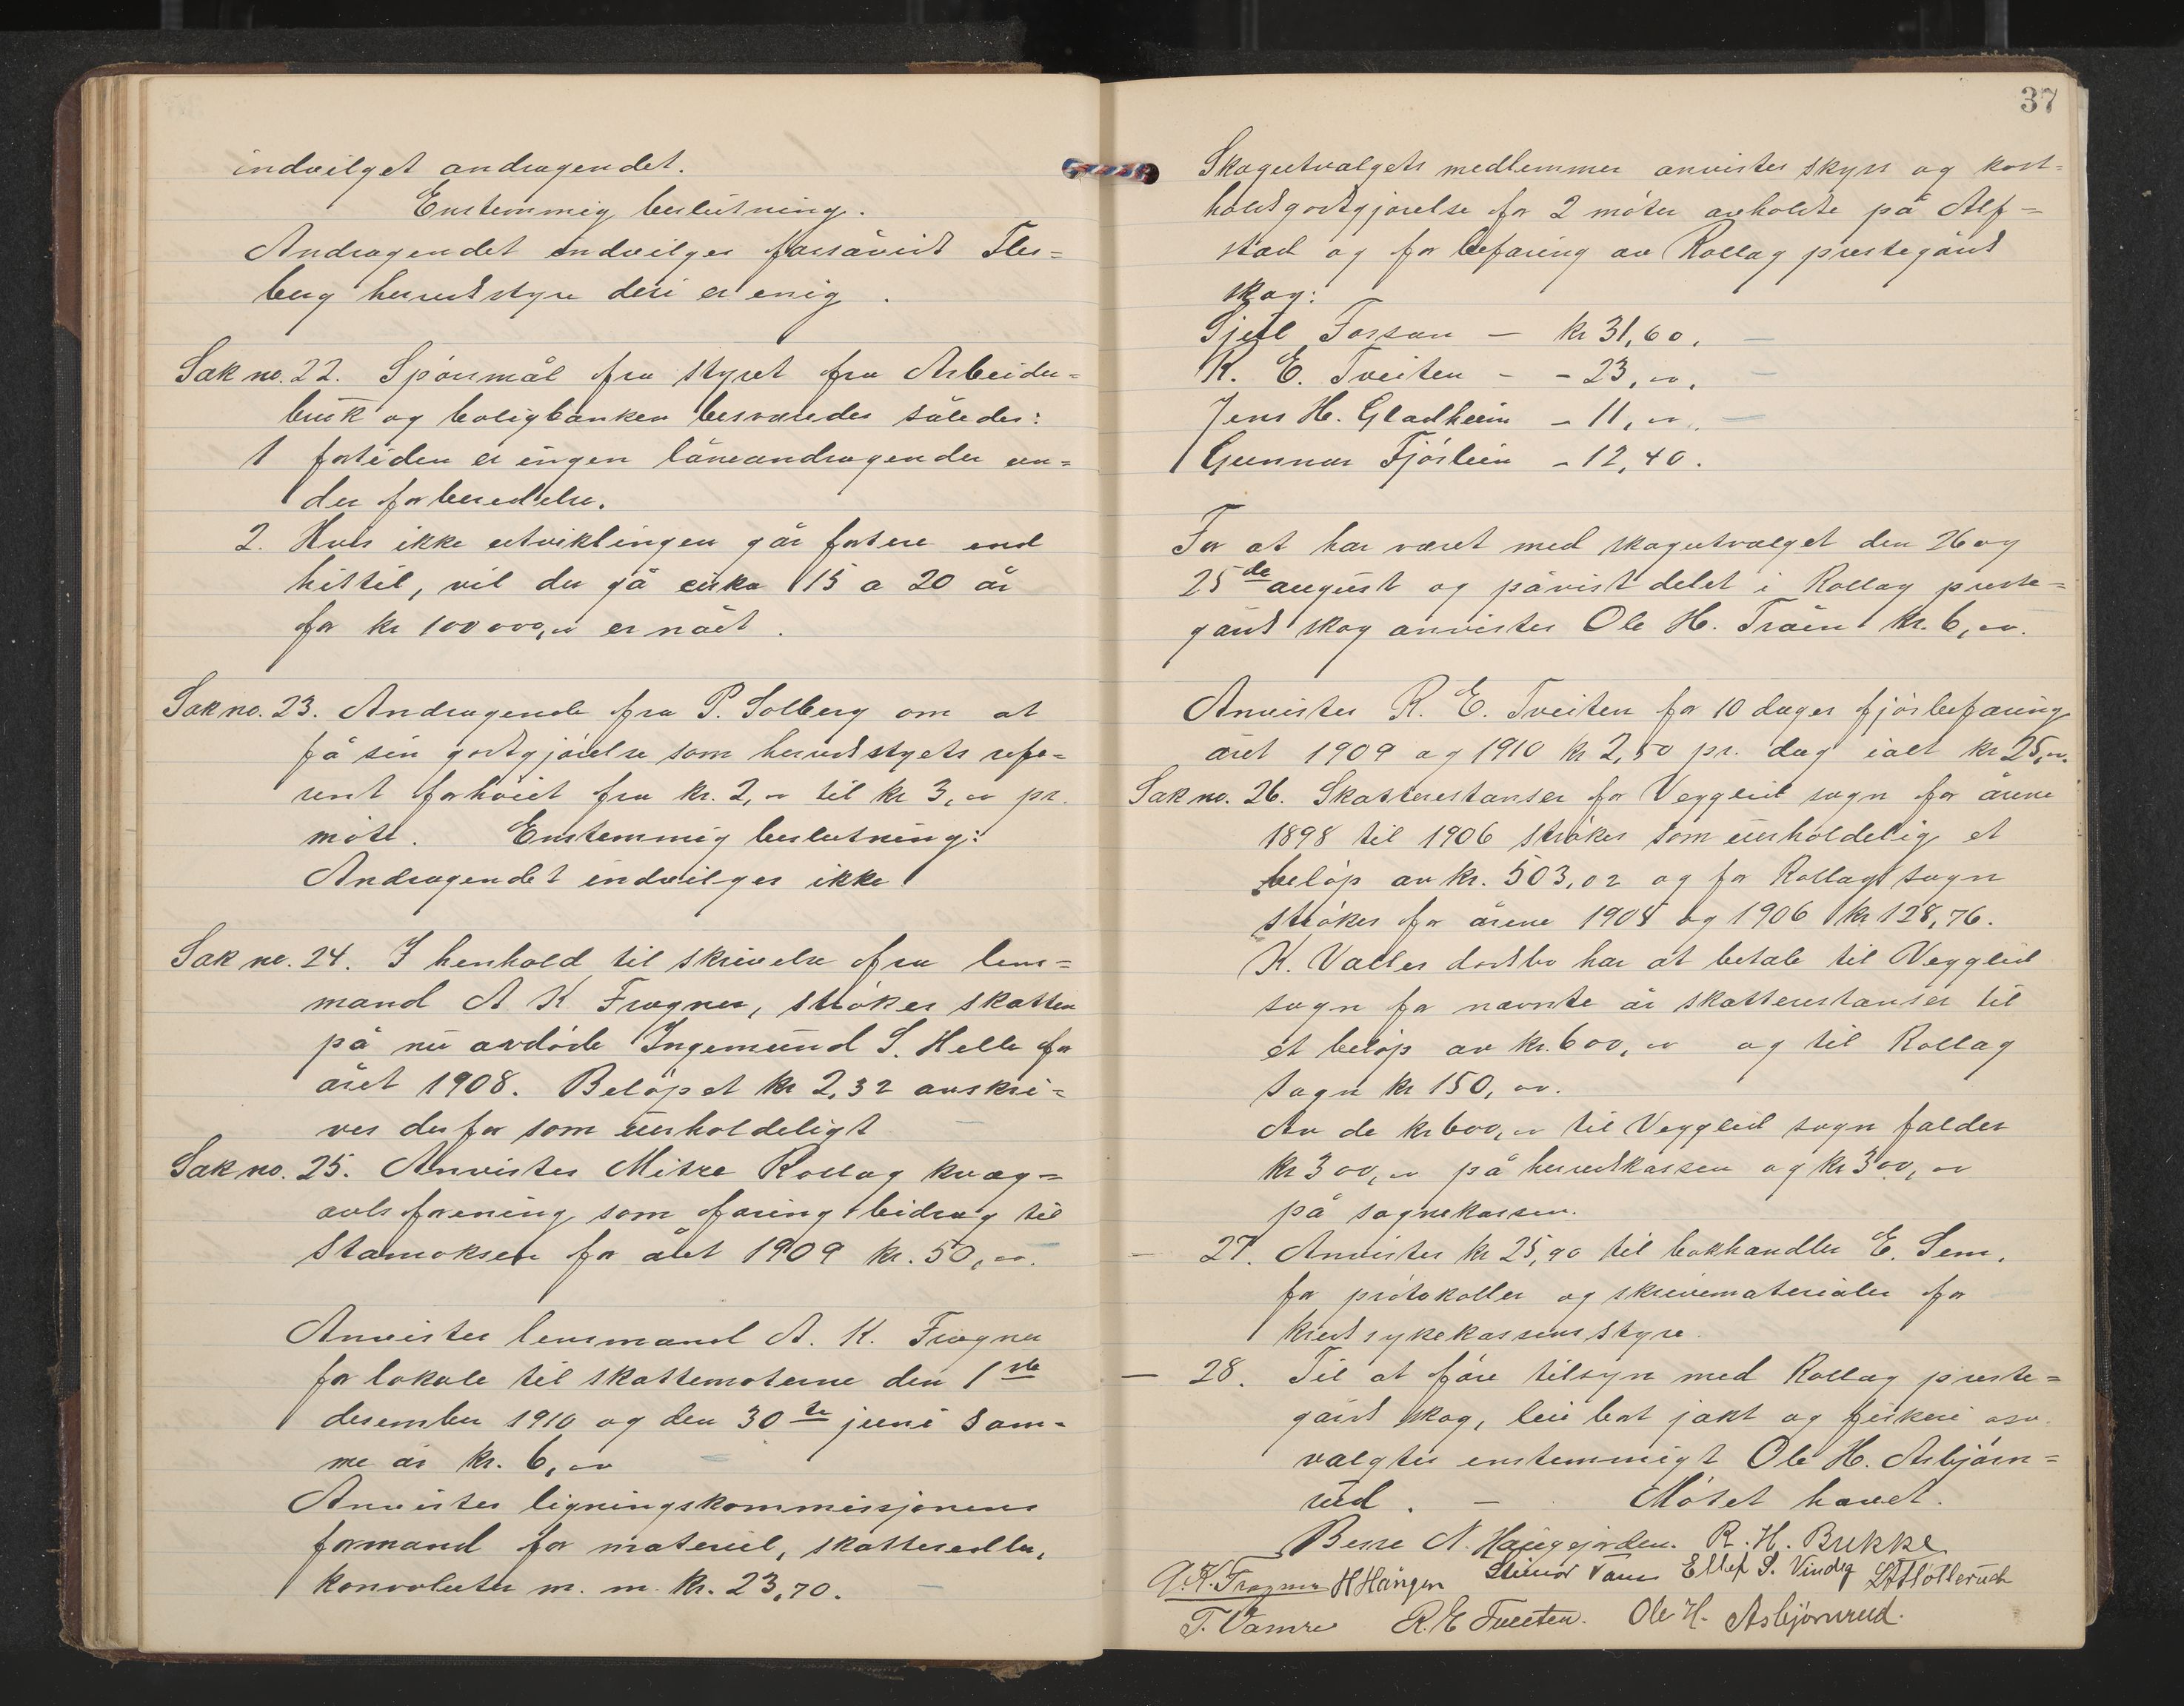 indvilget andragendet.
Enstemmig beslutning.
Andragendet indvilges forsåvidt Fles=
berg herredsstyre deri er enig.
Sak no. 22. Spörsmål fra styret fra Arbeider=
bruk og boligbanken besvaredes således:
1 fortiden er ingen låneandragender un=
der forberedelse.
2. Hvis ikke utviklingen går fortere end
hittil, vil der gå cirka 15 a 20 år
før kr 100000,00 er nået.
Sak no. 23. Andragende fra P. Solberg om at
få sin godtgjörelse som herredsstyrets refe=
rent forhöiet fra kr. 2,00 til kr 3,00 pr.
möte. Enstemmig beslutning:
Andragendet indvilges ikke.
Sak no. 24. I henhold til skrivelse fra lens=
mand A K Frogner, strökes skatten
på nu avdöde Ingemund S. Helle for
året 1908. Belöpet kr 2,32 avskri=
ves derfor som uerholdeligt
Sak no. 25. Anvistes Mitre Rollag kvæg=
avlsforening som foring bidrag til
Stamoksen for året 1909 kr. 50,00.
Anvistes lensmand A. K. Frogner
for lokale til skattemøterne den 1ste
desember 1910 og den 30te juni sam-
me år kr. 6,00
Anvistes ligningskommissjonens
formand for materiel, skattesedler,
konvolutter m. m. kr. 23,70.
37
Skogutvalgets medlemmer anvistes skyss og kost=
holdsgodtgjörelse for 2 möter avholdte på Alf=
stad og for befaring av Rollag prestegårds
skog:
Gjeil Fossan - kr 31,60.
R. E. Tveiten - - 23,00.
Jens H. Gladheim - 11,00.
Gunnar Fjöslein - 12,40.
For at har været med skogutvalget den 26 og
25de august og påvist delet i Rollag preste=
gårds skog anvistes Ole H. Tråen kr. 6,00.
Anvistes R. E. Tveiten for 10 dages fjösbefaring
året 1909 og 1910 kr 2,50 pr. dag ialt kr 25,00.
Sak no. 26. Skatterestanser for Veggli sogn for årene
1898 til 1906 strökes som uerholdelig et
belöp av kr. 503,02 og for Rollags sogn
strökes for årene 1905 og 1906 kr 128,76.
K. Valles dødsbo har at betale til Vegglid
sogn for nævnte år skatterestanser til
et belöp av kr. 600,00 og til Rollag
sogn kr 150,00.
Av de kr 600,00 til Vegglid sogn falder
kr 300,00 på herredskassen og kr 300,00
på sognekassen.
- 27. Anvistes kr 25,90 til bokhandler E. Sem.
for protokoller og skrivematerialer for
kredssykekassens styre.
- 28. Til at före tilsyn med Rollag preste=
gårds skog, leie bort jakt og fiskeri osv.
valgtes enstemmigt Ole H. Asbjörn=
rud. - Mötet hævet.
Besse N. Haugejorden. R. H. Bukke
A. K. Frogner H Haugen Steinar Vam Ellef S. Vindeg
T. Vamre R. E Tveiten. Ole H. Asbjörnrud.